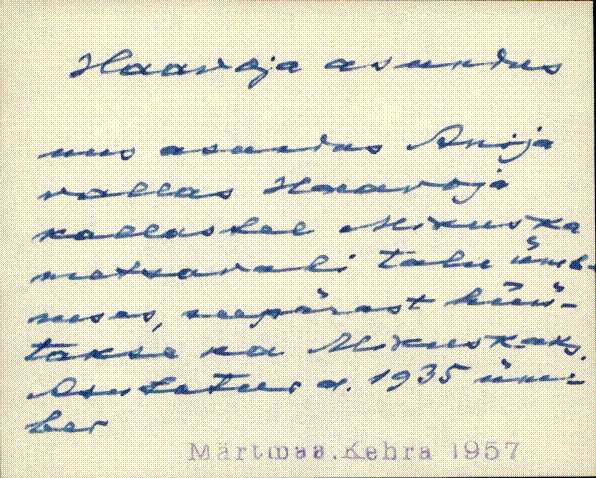 Haavoja asundus
uus asundus Anija
vallas Haavoja
kallastel Mikuska
metsavahi talu ümb-
ruses, seepärast hüü-
takse ka Mikuskaks.
Asutatud a. 1935 üm-
ber
Märtmaa.Kehra 1957